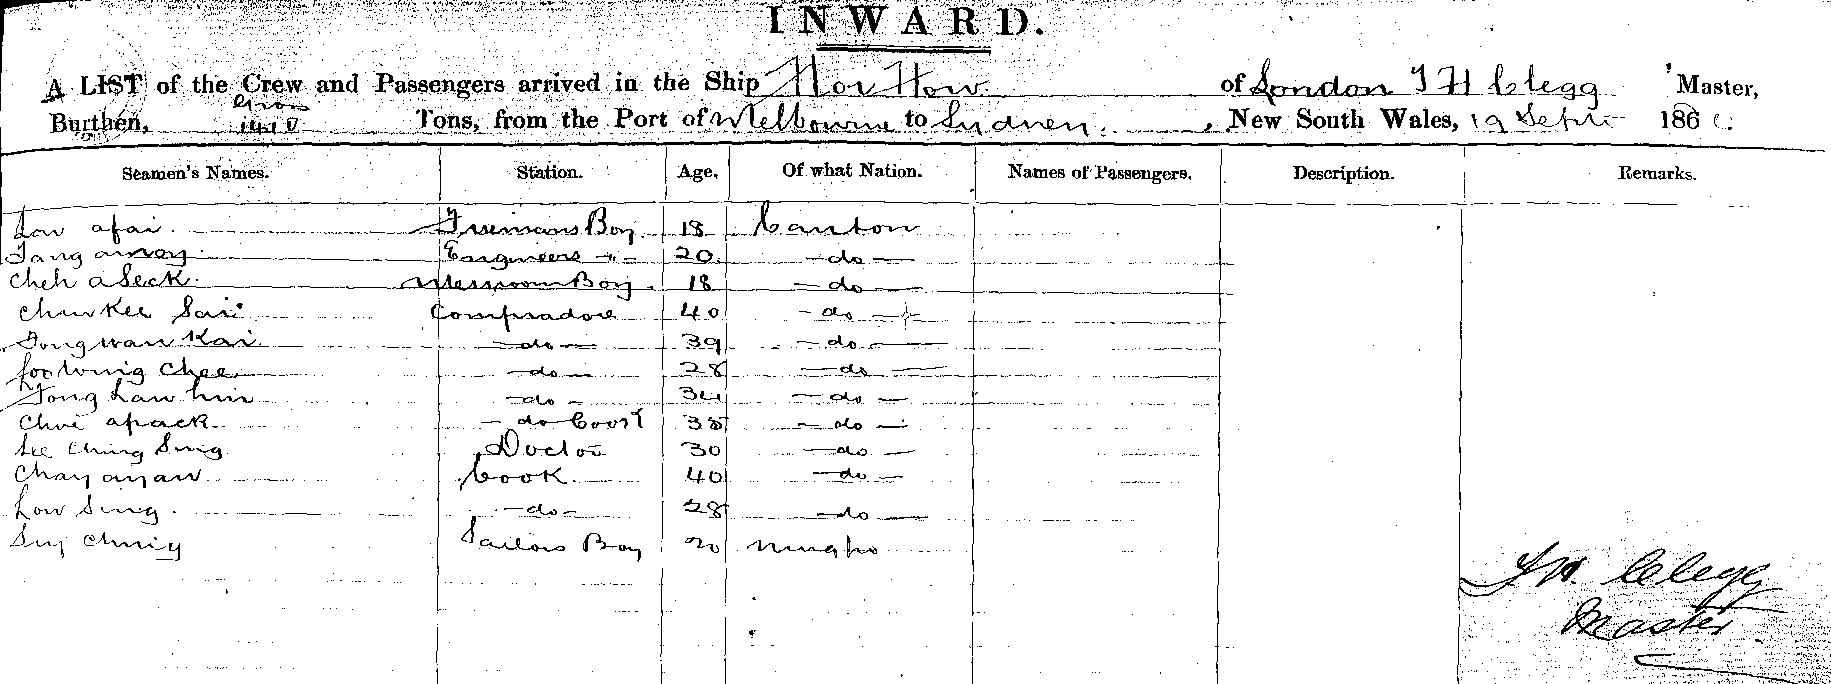 INWARD.
A LIST of the Crew and Passengers arrived in the Ship Hoi How of London T H Clegg Master,
Burthen, Gross 1410 Tons, from the Port of Melbourne to Sydney, New South Wales, 19 Septr 186
Seamen's Names. Station. Age. Of what Nation. Names of Passengers. Description. Remarks.
Low afai Firemans Boy 18 Canton
Tang Engineers " 20 - do -
Cheh aSeck Messroom Boy 18 - do -
Chukee Sai Compradore 40 - do -
Tong wan Kai - do - 39 - do -
Foo wing Chee - do - 28 - do -
Tong Law hin - do - 34 - do -
Chui apack - do Cook 38 - do -
See Ching Sing Doctor 30 - do -
Chay ayaw Cook 40 - do -
Low Sing - do - 28 - do -
Suy Sailors Boy 20 Ningpo
Clegg
Master